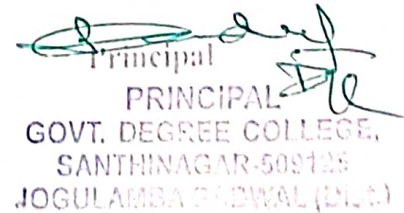 Principal
PRINCIPAL
GOVT. DEGREE COLLEGE,
SANTHINAGAR-509126
JOGULAMBA GADWAL (Dist.)